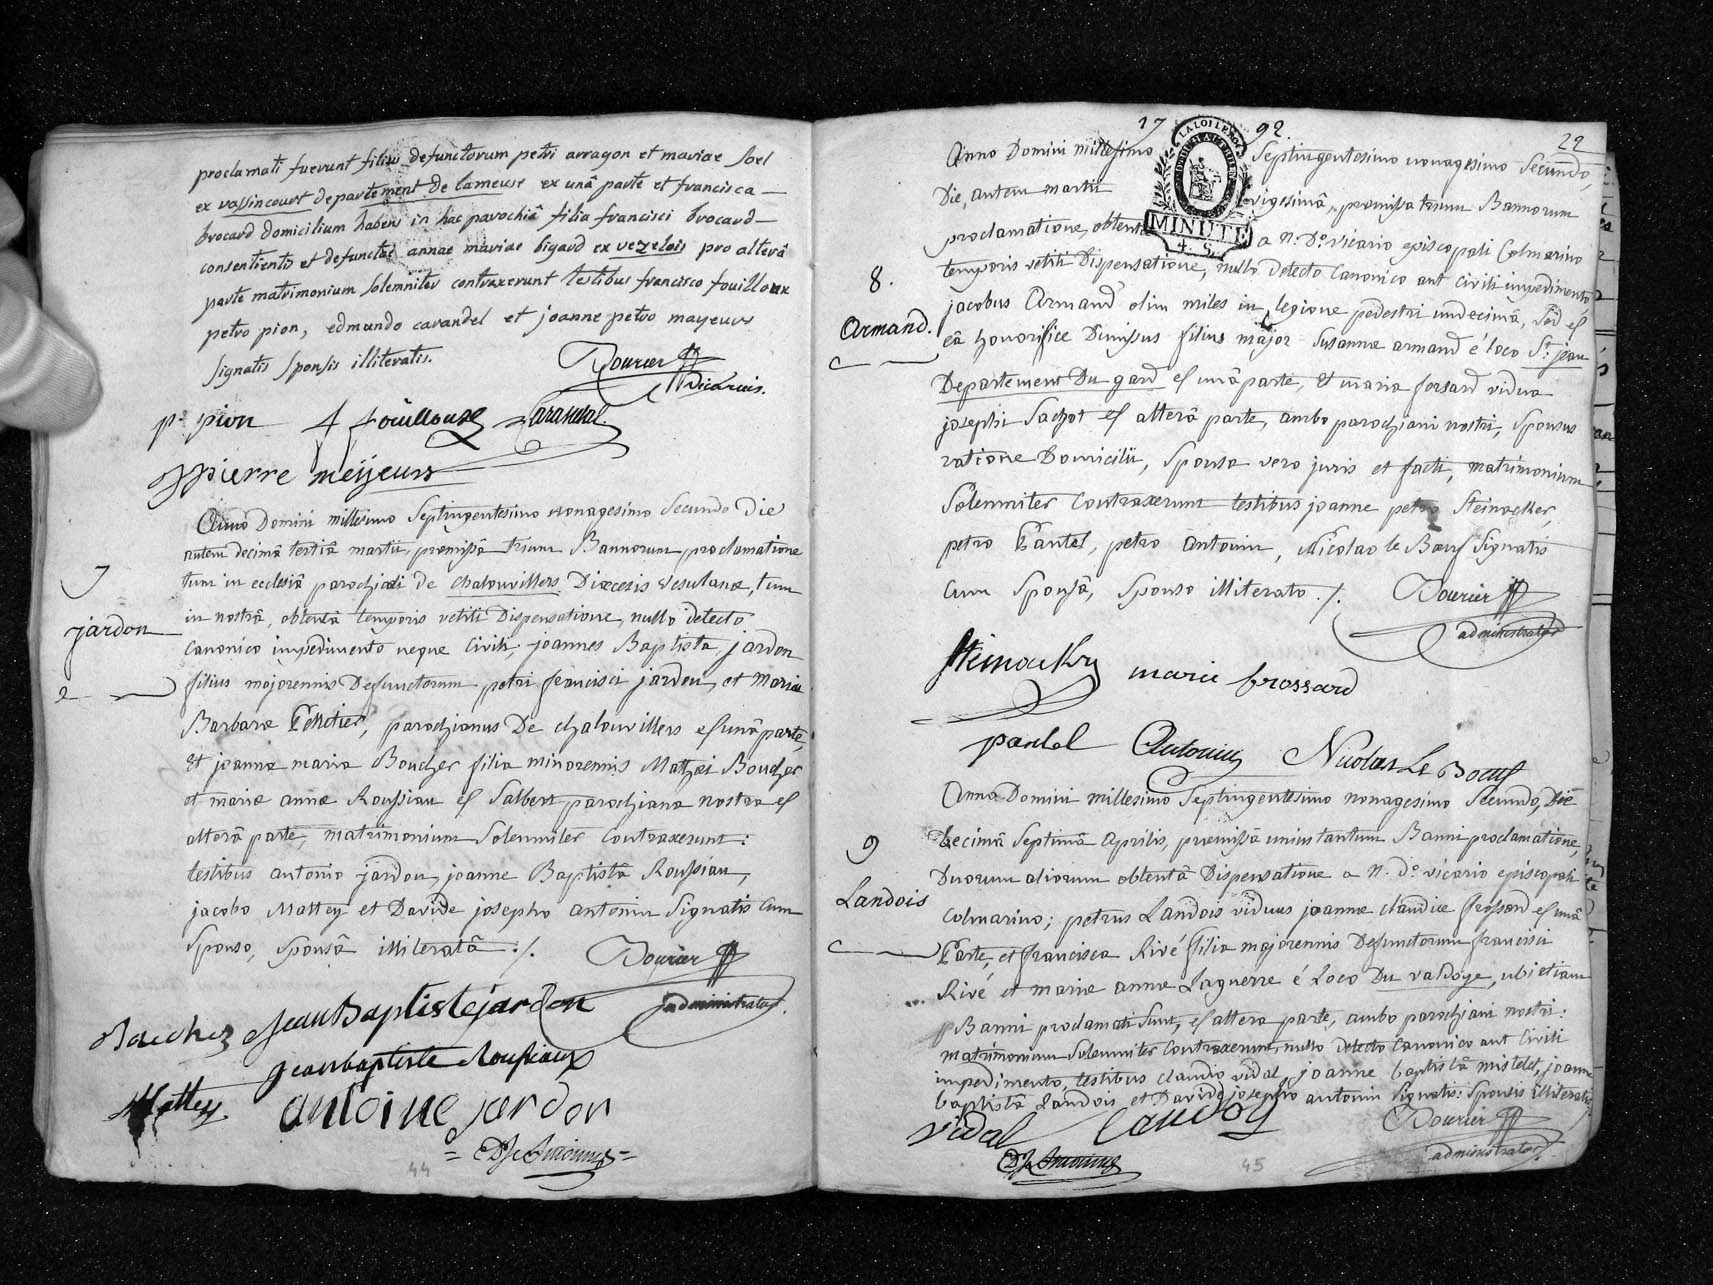 proclamati fuerunt filius defunctorum petri arragon et mariae sorl
ex vassincourt departement de lameuse ex unâ parte et francisca
brocard domicilium habens in hac parochiâ filia francisci brocard
consentientis et defunctae annae mariae bigard ex vezelois pro alterâ
parte matrimonium solemniter contraxerunt testibus francisco fouilloux
petro pion, edmundo carandel et joanne petro mayeurs
signatis sponsis illiteratis.
Dourier
vicarius.
p. pion f fouilloux Carandal
jpierre meyeurs
7
jardon
Anno Domini millesimo Septingentesimo nonagesimo Secundo Die
autem decimâ tertiâ martii, præmissâ trium Bannorum proclamatione
tum in ecclesiâ parochiali de chalonvillers Dioecesis vesulanæ, tum
in nostrâ, obtentâ temporis vetiti Dispensatione, nullo detecto
Canonico impedimento neque Civili, joannes Baptista jardon
filius majorennis Defunctorum petri francisci jardon, et Mariæ
Barbaræ Pelletier, parochianus De chalonvillers ex unâ parte,
Et joanna maria Boucher filia minorennis Mathæi Boucher
et mariæ annæ Roussiau ex Salbert parochiana nostra ex
alterâ parte, matrimonium Solemniter Contraxerunt:
testibus antonio jardon, joanne Baptistâ Roussiau,
jacobo Mattey et Davide josepho antonin Signatis Cum
Sponso, Sponsâ illiteratâ ./.
Dourier
administrator.
Bauchez Jean Baptiste jardon
jeanbaptiste Roussiaux
Mattey. antoine jardon
DJ Antonin
44
17 92.
22
LA LOI LE ROI
MINUTE
4. S.
8.
Armand.
Anno Domini millesimo Septingentesimo nonagesimo Secundo,
Die, autem martii vigesimâ, præmissa trium Bannorum
proclamatione, obtenta a n. Dº vicario episcopali Colmarino
temporis vetiti Dispensatione, nullo detecto Canonico aut Civili impedimento
jacobus Armand olim miles in legione pedestri undecimâ, sed ex
eâ honorifice Dimissus filius major Susannæ armand è loco St. jean
Departement Du gard ex unâ parte, Et maria frossard vidua
josephi Sachot ex alterâ parte, ambo parochiani nostri, Sponsus
ratione Domicilii, Sponsa vero juris et facti, matrimonium
Solemniter Contraxerunt testibus joanne petro Steinacker,
petro Pantel, petro antonin, Nicolao le Bœuf Signatis
Cum Sponsâ, Sponso illiterato ./.
Dourier
administrator
marie frossard
pantel Antonin Nicolas Le Boeuf
9
Landois
Anno Domini millesimo Septingentesimo nonagesimo Secundo, Die
Decimâ Septimâ Aprilis, præmissâ unius tantum Banni proclamatione,
Duorum aliorum obtentâ Dispensatione a N. Dº vicario episcopali
Colmarino; petrus Landois viduus joannæ claudiæ frossard ex unâ
Parte, et francisca Rivé filia majorennis Defunctorum francisci
Rivé et mariæ annæ Laguerre è Loco Du valdoye, ubi etiam
Banni proclamati Sunt, ex altera parte, ambo parochiani nostri:
matrimonium Solemniter Contraxerunt, nullo detecto Canonico aut Civili
impedimento, testibus claudio vidal, joanne baptistâ mistelet, joanne
baptistâ Landois et Davide josepho antonin Signatis: Sponsis illiteratis
vidal Landoy
Dourier
administrator.
DJ Antonin
45